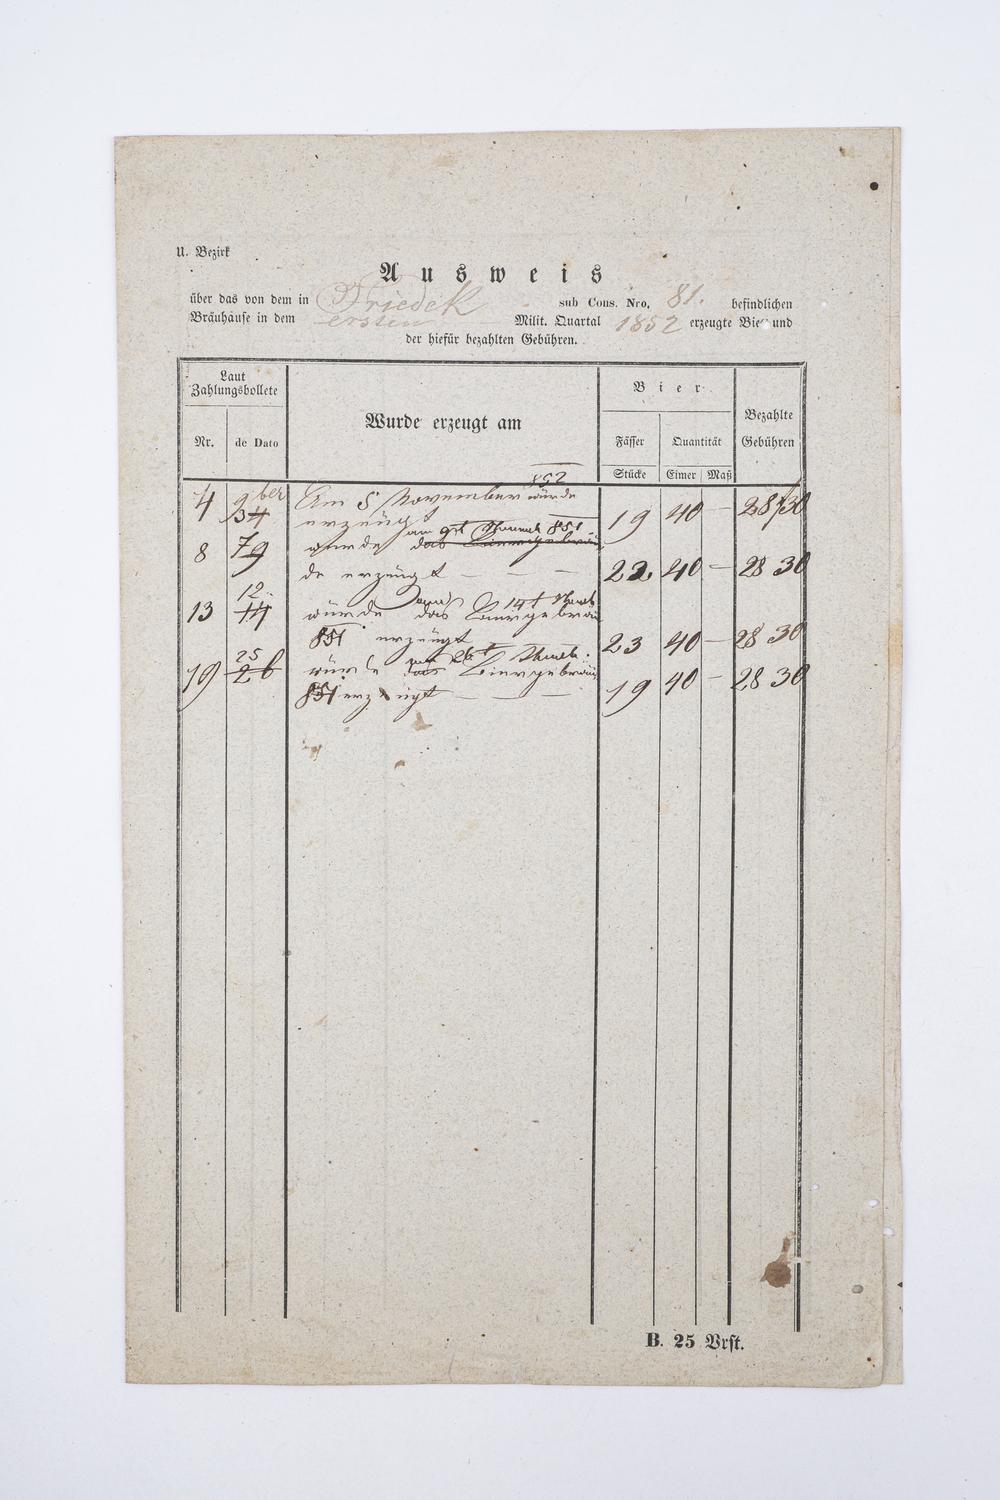 U. Bezirk
Ausweis
über das von dem in Friedek sub Cons. Nro, 81. befindlichen
Bräuhause in dem ersten Milit. Quartal 1852 erzeugte Bier und
der hiefür bezahlten Gebühren.
Laut
Zahlungsbollete
Nr.
de Dato
Wurde erzeugt am
Bier
Fässer
Stücke
Quantität
Eimer
Maß
Bezahlte
Gebühren
852
4 9ber Am 5 November würde
erzeugt 19 40 — 28 30
am 9t 851
8 wurde das
de erzeugt — — — 22 40 — 28 30
12. 14t
13 14 würde das
851 erzeugt 23 40 — 28 30
25 26t
19 26 würde das Biergebräu
851 erzeugt — — 19 40 — 28 30
B. 25 Vrst.